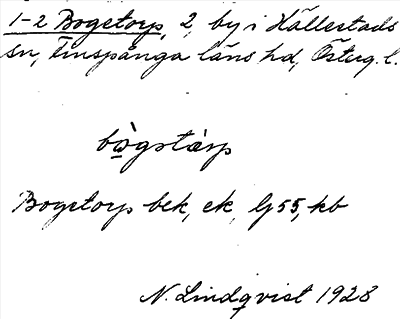 1-2 Bogetorp, 2, by i Hällestads
sn, Finspånga läns hd, Österg. l.
bògstàrp
Bogetorp bek, ek, G 55, kb
N. Lindqvist 1928